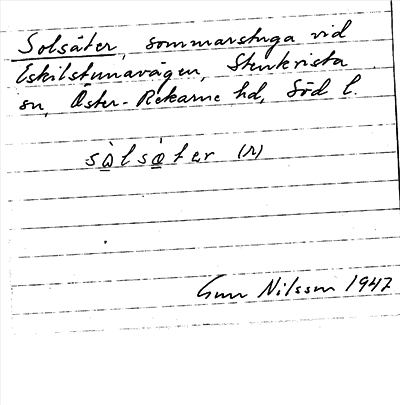 Solsäter, sommarstuga vid
Eskilstunavägen, Stenkvista
sn, Öster-Rekarne hd, Söd l.
sòlsæ̀ter (r)
Gun Nilsson 1947